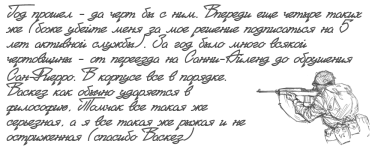 Год прошел - да черт бы с ним. Впереди еще четыре таких
же (боже убейте меня за мое решение подписаться на 5
лет активной службы). За год было много всякой
чертовщины - от переезда на Санни-Айленд до обрушения
Сан-Фиерро. В корпусе все в порядке.
Васкез как обычно ударяется в
философию, Томчак все такая же
серьезная, а я все такая же рыжая и не
остриженная (спасибо Васкез)